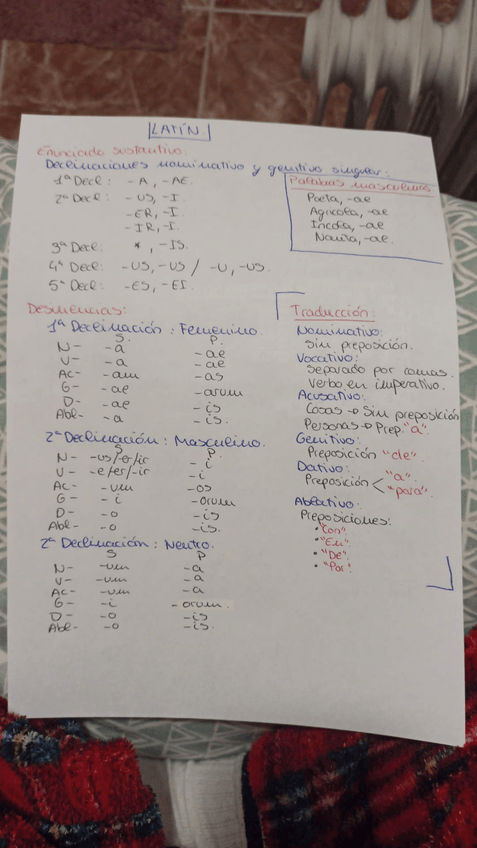 LATÍN
Enunciado sustantivo:
Declinaciones nominativo y genitivo singular:
1ª Decl: -A, -AE.
2ª Decl: -US, -I
-ER, -I.
-IR, -I.
3ª Decl: *, -IS.
4ª Decl: -US, -US / -U, -US.
5ª Decl: -ES, -EI.
Palabras masculinas
Poeta, -ae
Agricola, -ae
Incola, -ae
Nauta, -ae.
Desinencias:
1ª Declinación: Femenino.
S. P.
N- -a -ae
V- -a -ae
AC- -am -as
G- -ae -arum
D- -ae -is
Abl- -a -is
2ª Declinación: Masculino.
S P.
N- -us/-er/-ir -i
V- -e/er/-ir -i
AC- -um -os
G- -i -orum
D- -o -is
Abl- -o -is.
2ª Declinación: Neutro.
S P
N- -um -a
V- -um -a
AC- -um -a
G- -i -orum.
D- -o -is
Abl- -o -is.
Traducción:
Nominativo:
Sin preposición.
Vocativo:
Separado por comas.
Verbo en imperativo.
Acusativo:
Cosas → Sin preposición
Personas → Prep. "a".
Genitivo:
Preposición "de"
Dativo:
Preposición < "a".
"para".
Ablativo:
Preposiciones:
• "Con"
• "En".
• "De"
• "Por".